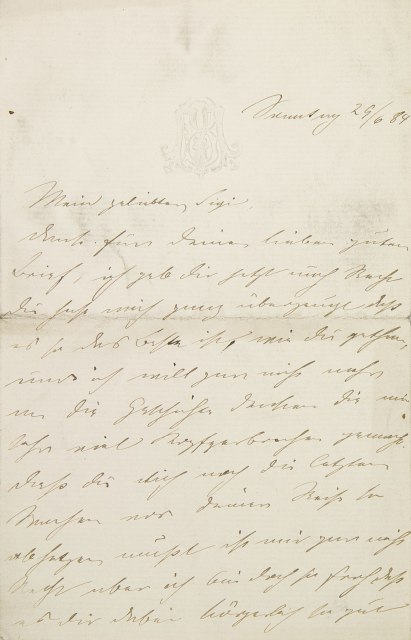 Sonntag 29/6 84
Mein geliebter Sigi,
danke für Deinen lieben guten
Brief, ich geb dir jetzt auch Recht
Du hast mich ganz überzeugt daß
es so das Beste ist, wie du gethan,
und ich will gar nicht mehr
an die Geschichte denken die mir
sehr viel Kopfzerbrechen gemacht.
Daß du dich noch die letzten
Wochen vor deiner Reise so
abhetzen mußt ist mir gar nicht
Recht aber ich bin doch so froh daß
es dir dabei körperlich so gut